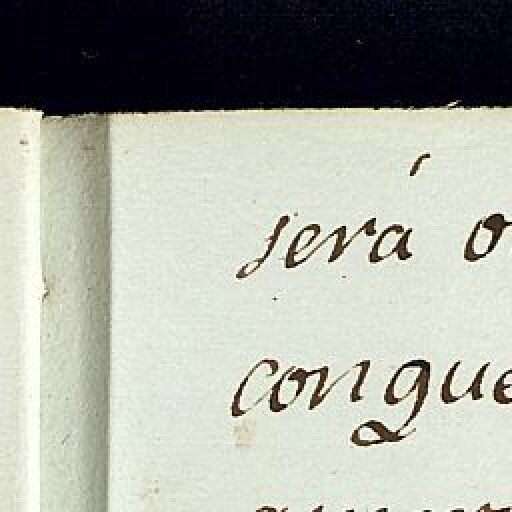 será o
conque